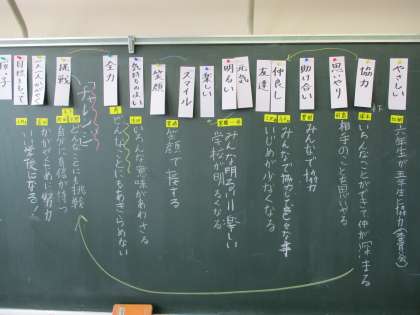 やさしい
協力
思いやり
助け合い
仲良し
友達
元気
明るい
楽しい
スマイル
笑顔
気持ちのよい
全力
挑戦
一人一人がかがやく
目標をもって
六年生が五年生に協力
いろんなことができて仲が深まる
相手のことを思いやる
みんなで協力
みんなで協力して色々な事
いじめが少なくなる
みんな明るい楽しい
学校が明るくなる
笑顔で接する
いろんな意味があわさる
どんなことにもあきらめない
「チャレンジ」
どんなことにも挑戦
自分に自信が持つ
かがやくために努力
いい学年になる!